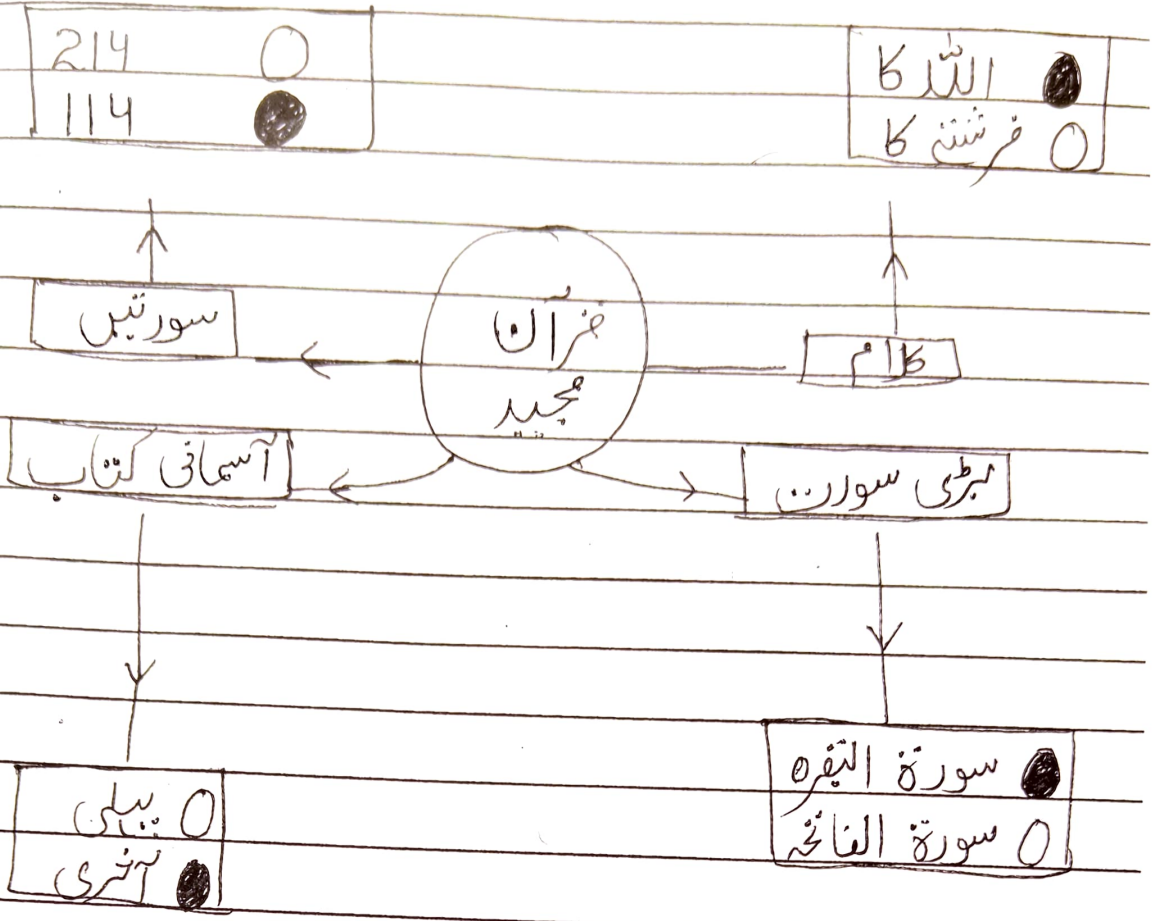 214
114
اللہ کا
فرشتے کا
سورتیں
قرآن
مجید
کلام
آسمانی کتاب
بڑی سورت
سورۃ البقرہ
سورۃ الفاتحہ
پہلی
آخری